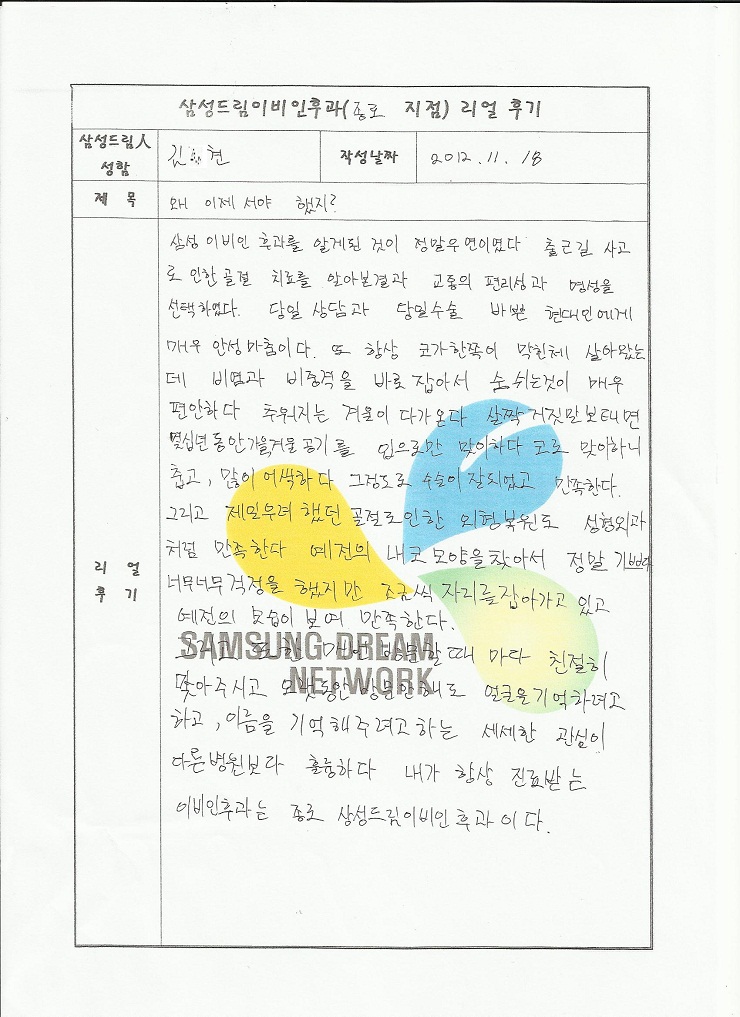 삼성드림이비인후과(종로 지점) 리얼 후기
삼성드림人
성함
김 현
작성날짜
2012. 11. 18
제 목
왜 이제서야 했지?
리 얼
후 기
삼성 이비인 후과를 알게된 것이 정말우연이였다 출근길 사고
로 인한 골절 치료를 알아본결과 교통의 편리성과 명성을
선택하였다. 당일 상담과 당일수술 바쁜 현대인에게
매우 안성마춤이다. 또 항상 코가한쪽이 막힌체 살아왔는
데 비염과 비중격을 바로잡아서 숨쉬는것이 매우
편안하다 추워지는 겨울이 다가온다 살짝거짓말보태면
몇십년동안가을,겨울 공기를 입으로만 맞이하다 코로 맞이하니
춥고, 많이 어색하다 그정도로 수술이 잘되었고 만족한다.
그리고 제일우려 했던 골절로인한 외현복원도 성형외과
처럼 만족한다 예전의 내코모양을찾아서 정말 기쁘다
너무너무걱정을 했지만 조금씩 자리를잡아가고 있고
예전의 모습이 보여 만족한다.
그리고 또한 매번 방문할때 마다 친절히
맞아주시고 오랫동안 방문안해도 얼굴을기억하려고
하고, 이름을 기억해주려고하는 세세한 관심이
다른병원보다 훌륭하다 내가 항상 진료받는
이비인후과는 종로 삼성드림이비인후과이다.
SAMSUNG DREAM
NETWORK